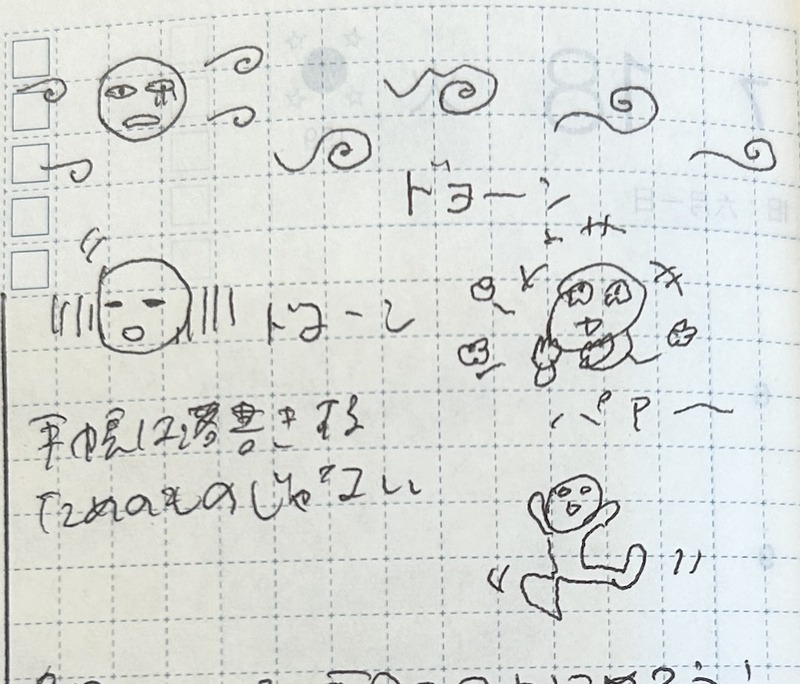 ドヨーン
ドヨーン
パァー
手帳は落書きする
ためのものじゃない